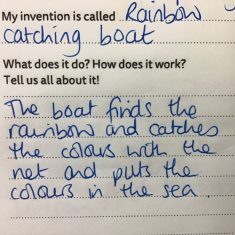 My invention is called Rainbow
catching boat
What does it do? How does it work?
Tell us all about it!
The boat finds the
rainbow and catches
the colours with the
net and puts the
colours in the sea.